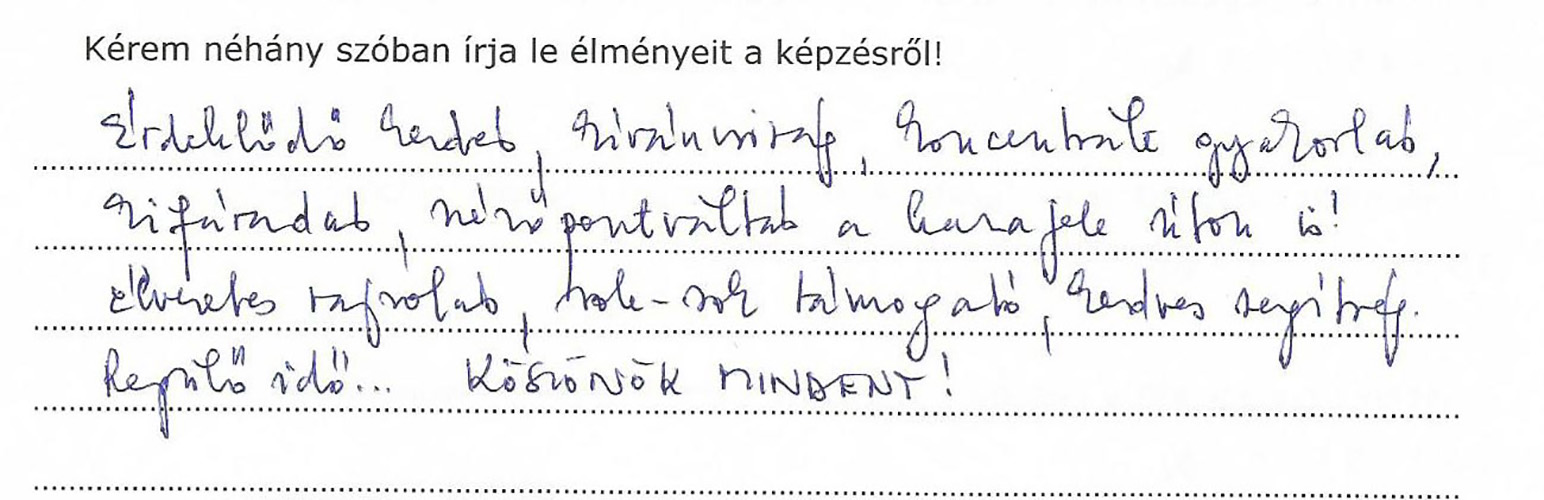 Kérem néhány szóban írja le élményeit a képzésről!
Érdeklődő kezdet, kíváncsiság, koncentrált gyakorlat,
kifáradat, nézőpontváltat a hazafele úton is!
Élvezetes rajzolat, sok-sok támogató, kedves segítség.
Repülő idő... KÖSZÖNÖK MINDENT!